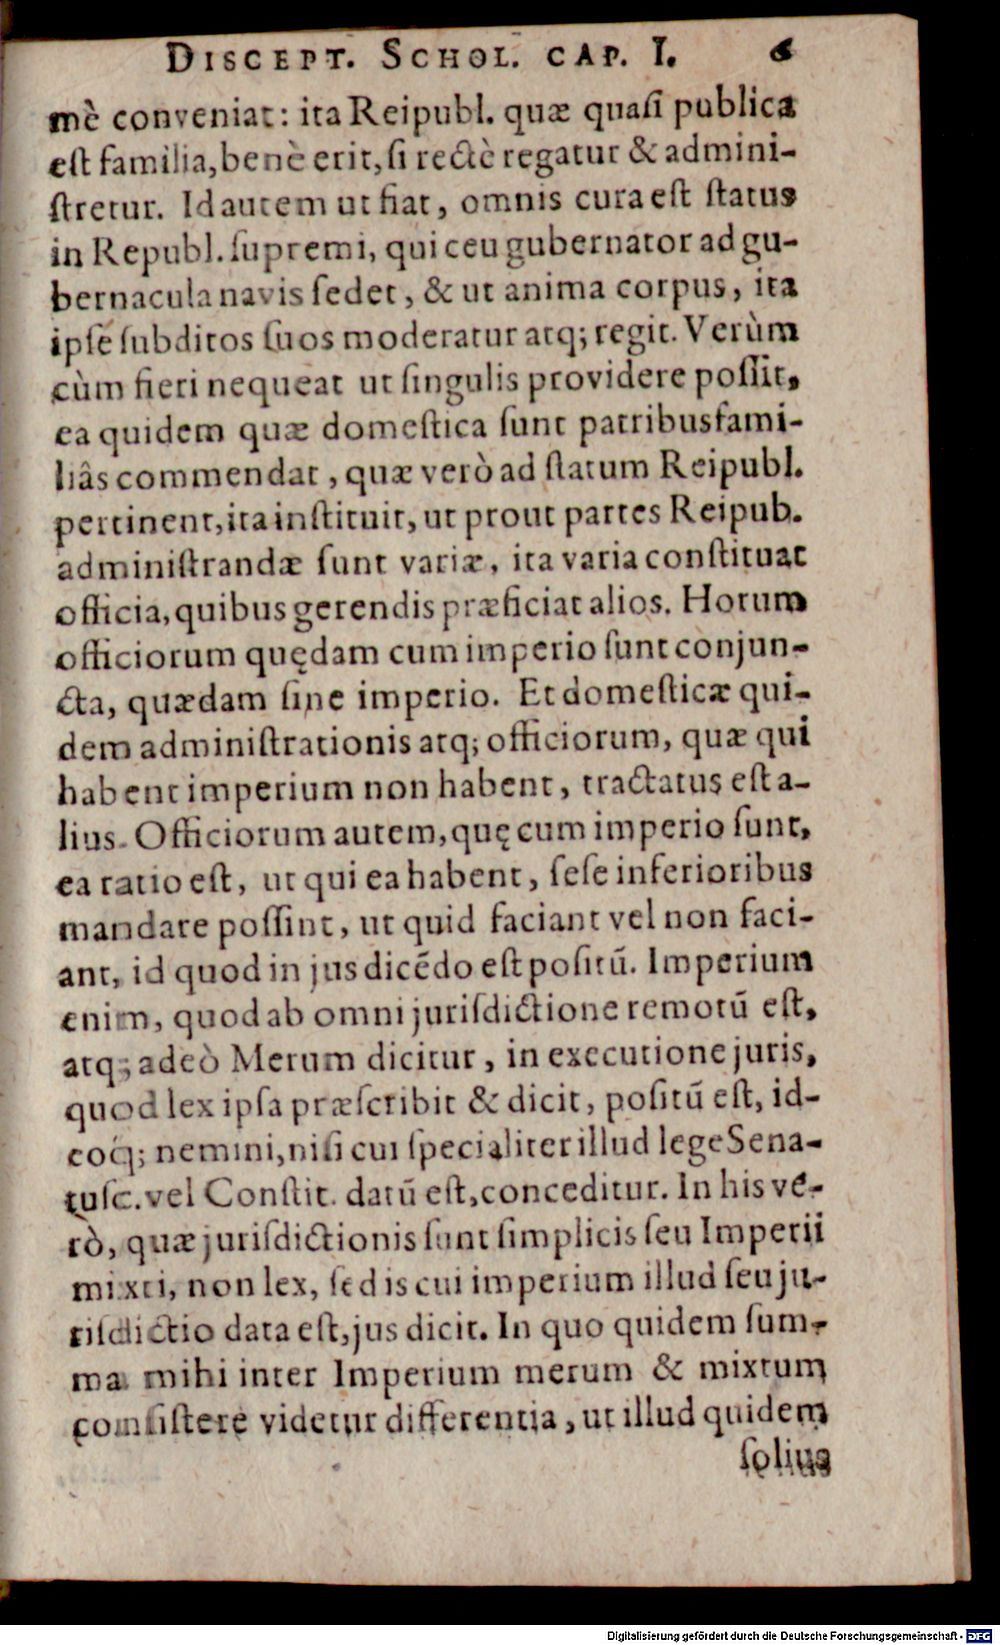 DISCEPT. SCHOL. CAP. I. 6
mè conveniat: ita Reipubl. quæ quasi publica
est familia, benè erit, si rectè regatur & admini-
stretur. Id autem ut fiat, omnis cura est status
in Republ. supremi, qui ceu gubernator ad gu-
bernacula navis sedet, & ut anima corpus, ita
ipse subditos suos moderatur atq; regit. Verùm
cùm fieri nequeat ut singulis providere possit,
ea quidem quæ domestica sunt patribusfami-
liâs commendat, quæ verò ad statum Reipubl.
pertinent, ita instituit, ut prout partes Reipub.
administrandæ sunt variæ, ita varia constituat
officia, quibus gerendis præficiat alios. Horum
officiorum quędam cum imperio sunt conjun-
cta, quædam sine imperio. Et domesticæ qui-
dem administrationis atq; officiorum, quæ qui
habent imperium non habent, tractatus est a-
lius. Officiorum autem, quę cum imperio sunt,
ea ratio est, ut qui ea habent, sese inferioribus
mandare possint, ut quid faciant vel non faci-
ant, id quod in jus dicẽdo est positũ. Imperium
enim, quod ab omni jurisdictione remotũ est,
atq; adeò Merum dicitur, in executione juris,
quod lex ipsa præscribit & dicit, positũ est, id-
eoq; nemini, nisi cui specialiter illud lege Sena-
tusc. vel Constit. datũ est, conceditur. In his ve-
rò, quæ jurisdictionis sunt simplicis seu Imperii
mixti, non lex, sed is cui imperium illud seu ju-
risdictio data est, jus dicit. In quo quidem sum-
ma mihi inter Imperium merum & mixtum
consistere videtur differentia, ut illud quidem
solius
Digitalisierung gefördert durch die Deutsche Forschungsgemeinschaft - DFG